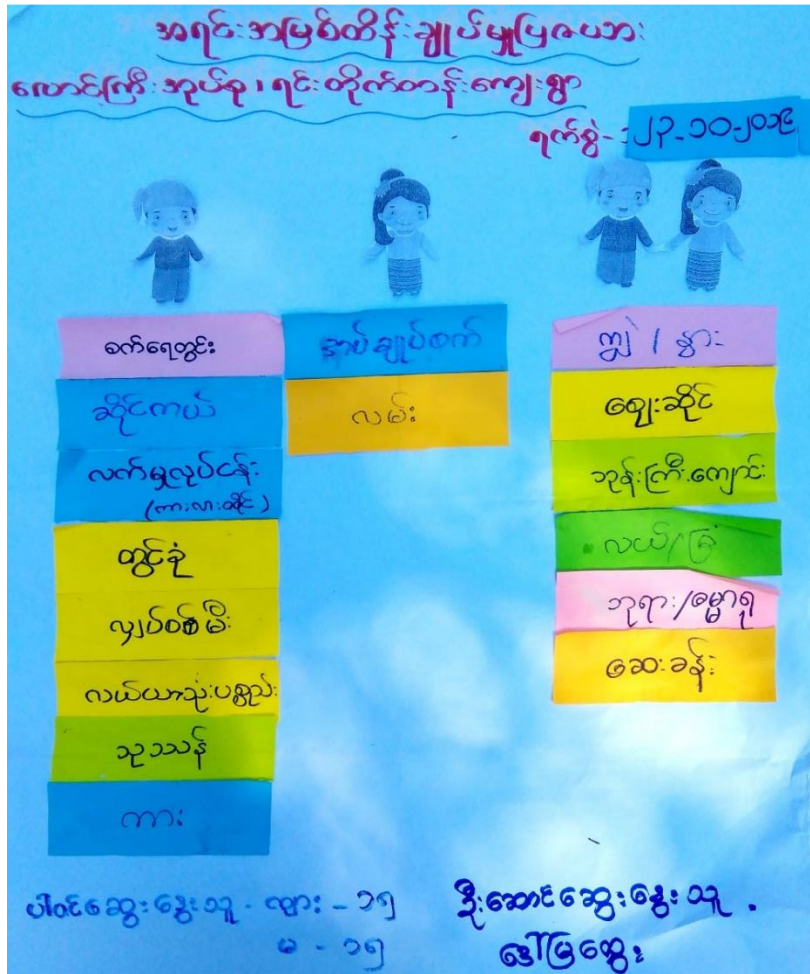 အရင်းအမြစ်ထိန်းချုပ်မှုပြဇယား
လောင်ကြီးအုပ်စု၊ ရင်းတိုက်တန်းကျေးရွာ
ရက်စွဲ - ၂၃-၁၀-၂၀၁၉
စက်ရေတွင်း
ဆိုင်ကယ်
လက်မှုလုပ်ငန်း
(ကားလားထိုင်)
တွင်ခုံ
လျှပ်စစ်မီး
လယ်ယာသုံးပစ္စည်း
သုဿန်
ကား
အပ်ချုပ်စက်
လမ်း
ကျွဲ / နွား
ဈေးဆိုင်
ဘုန်းကြီးကျောင်း
လယ်/ခြံ
ဘုရား/ဓမ္မာရုံ
ဆေးခန်း
ပါဝင်ဆွေးနွေးသူ - ကျား - ၁၅
မ - ၁၅
ဦးဆောင်ဆွေးနွေးသူ .
ဒေါ်မြထွေး